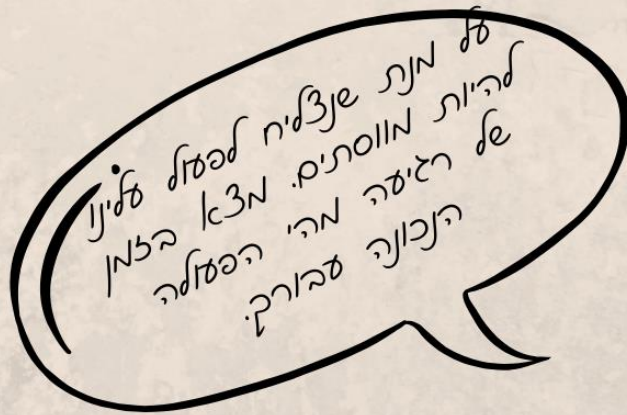 על מנת שנצליח לפעול עלינו
להיות מווסתים. מצא בזמן
של רגיעה מהי הפעולה
הנכונה עבורך.